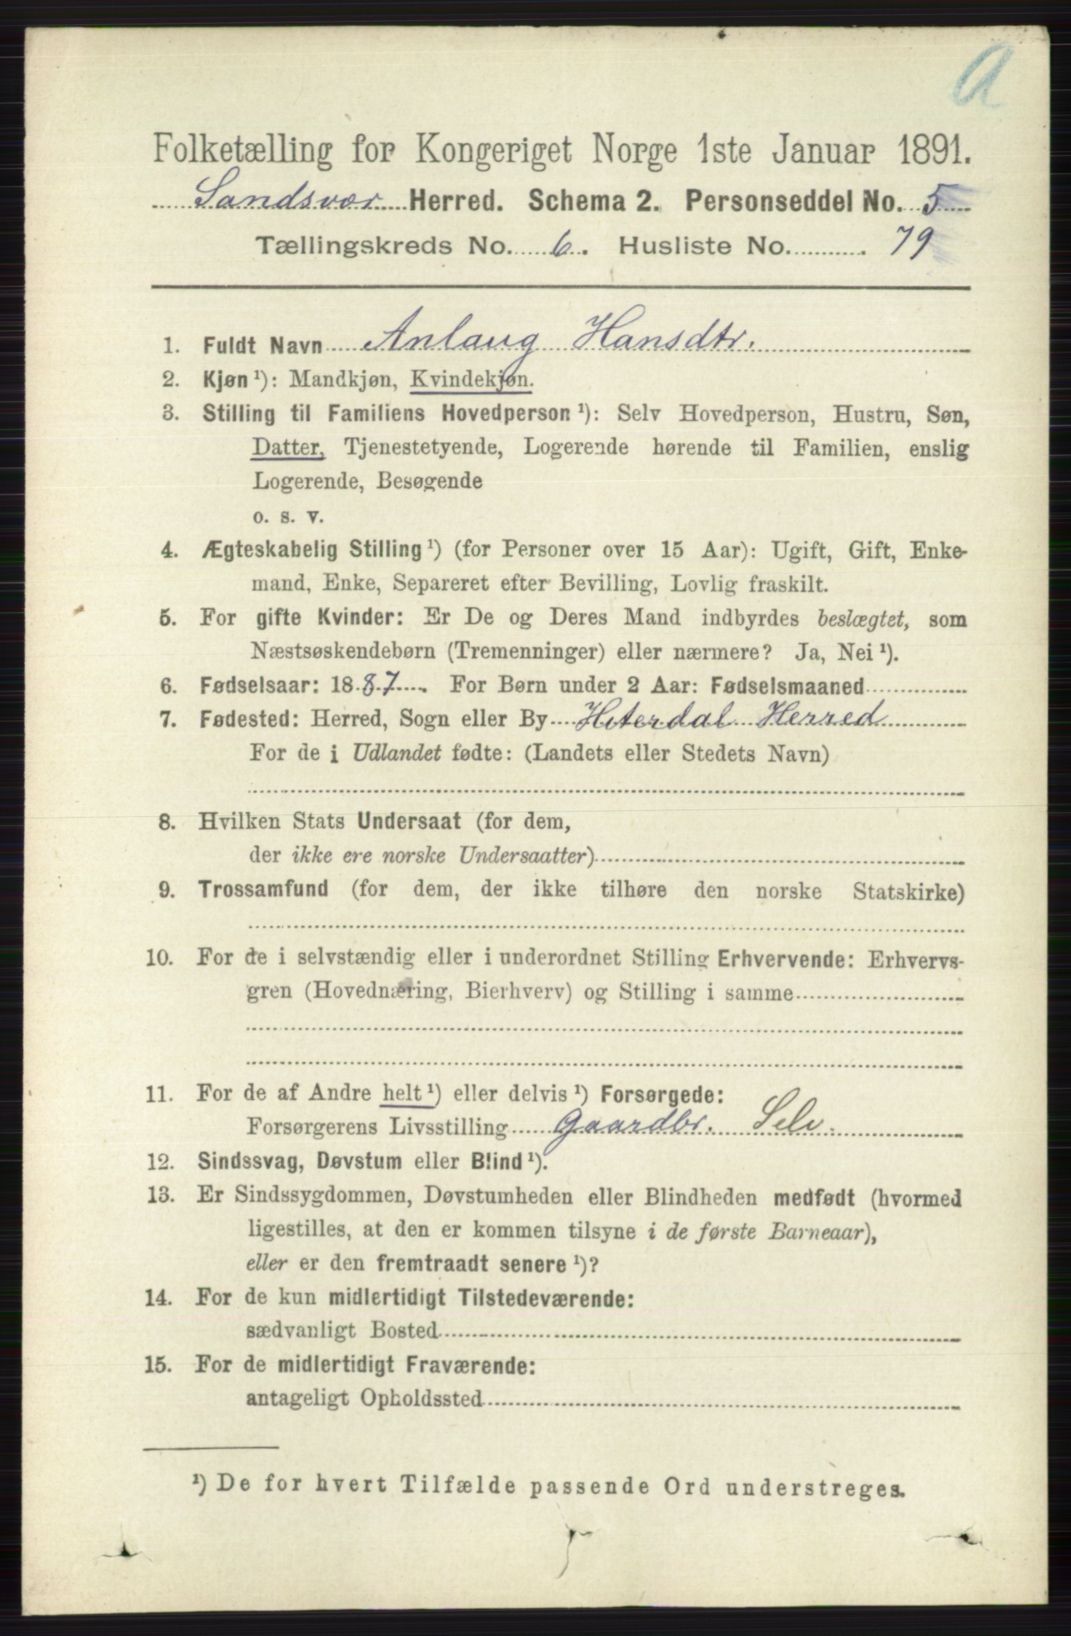 A
Folketælling for Kongeriget Norge 1ste Januar 1891.
Sandsvær Herred. Schema 2. Personseddel No. 5
Tællingskreds No. 6. Husliste No. 79
1. Fuldt Navn Anlaug Hansdtr.
2. Kjøn ¹): Mandkjøn, Kvindekjøn.
3. Stilling til Familiens Hovedperson ¹): Selv Hovedperson, Hustru, Søn,
Datter, Tjenestetyende, Logerende hørende til Familien, enslig
Logerende, Besøgende
o. s. v.
4. Ægteskabelig Stilling ¹) (for Personer over 15 Aar): Ugift, Gift, Enke-
mand, Enke, Separeret efter Bevilling, Lovlig fraskilt.
5. For gifte Kvinder: Er De og Deres Mand indbyrdes beslægtet, som
Næstsøskendebørn (Tremenninger) eller nærmere? Ja, Nei ¹).
6. Fødselsaar: 1887. For Børn under 2 Aar: Fødselsmaaned
7. Fødested: Herred, Sogn eller By Hiterdal Herred
For de i Udlandet fødte: (Landets eller Stedets Navn)
8. Hvilken Stats Undersaat (for dem,
der ikke ere norske Undersaatter)
9. Trossamfund (for dem, der ikke tilhøre den norske Statskirke)
10. For de i selvstændig eller i underordnet Stilling Erhvervende: Erhvervs-
gren (Hovednæring, Bierhverv) og Stilling i samme
11. For de af Andre helt ¹) eller delvis ¹) Forsørgede:
Forsørgerens Livsstilling Gaardbr. Selv.
12. Sindssvag, Døvstum eller Blind ¹).
13. Er Sindssygdommen, Døvstumheden eller Blindheden medfødt (hvormed
ligestilles, at den er kommen tilsyne i de første Barneaar),
eller er den fremtraadt senere ¹)?
14. For de kun midlertidigt Tilstedeværende:
sædvanligt Bosted
15. For de midlertidigt Fraværende:
antageligt Opholdssted
¹) De for hvert Tilfælde passende Ord understreges.